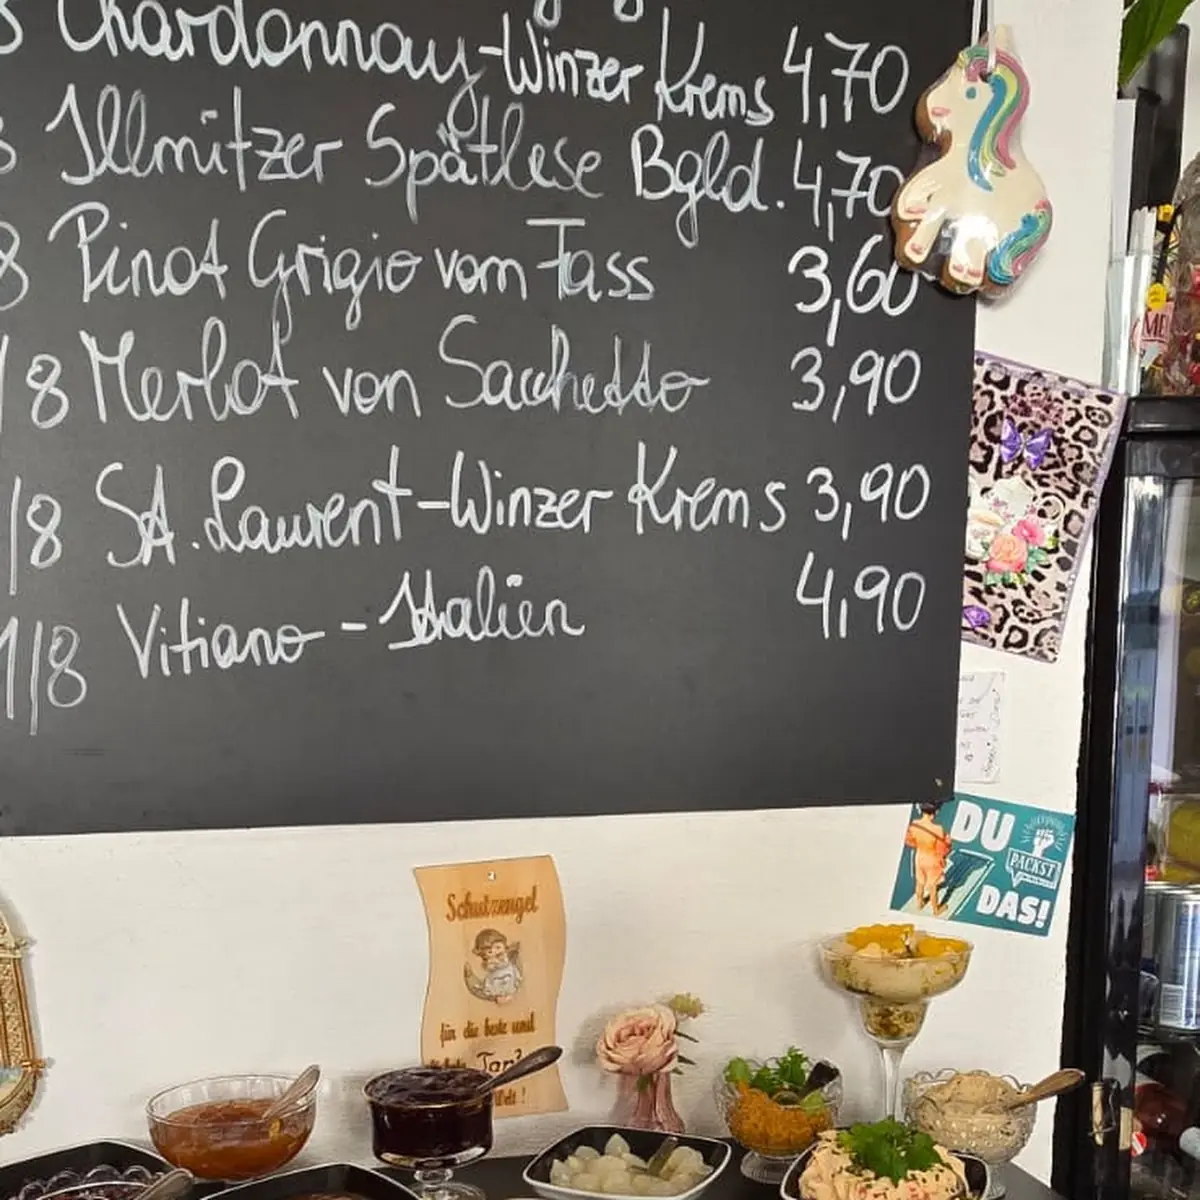 8 Chardonnay-Winzer Krems 4,70
8 Illmitzer Spätlese Bgld. 4,70
8 Pinot Grigio vom Fass 3,60
/8 Merlot von Sacchetto 3,90
/8 St. Laurent-Winzer Krems 3,90
1/8 Vitiano - Italien 4,90
DU
PACKST
DAS!
Schutzengel
für die beste und